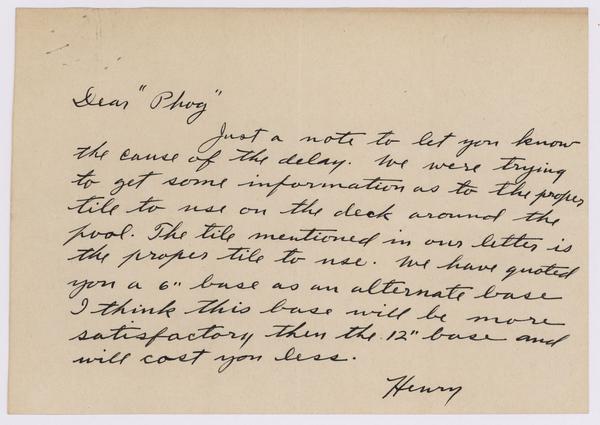 Dear "Phog"
Just a note to let you know
the cause of the delay. We were trying
to get some information as to the proper
tile to use on the deck around the
pool. The tile mentioned in our letter is
the proper tile to use. We have quoted
you a 6" base as an alternate base
I think this base will be more
satisfactory then the 12" base and
will cost you less.
Henry